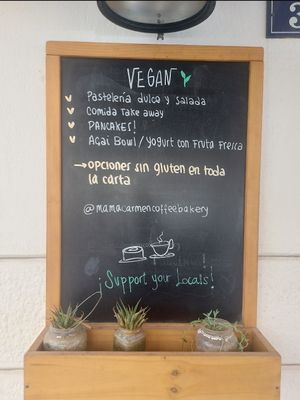 VEGAN
Pastelería dulce y salada
Comida take away
PANCAKES!
Açai Bowl / yogurt con fruta fresca
→ opciones sin gluten en toda
la carta
@mamacarmencoffeebakery
¡Support your Locals!
3